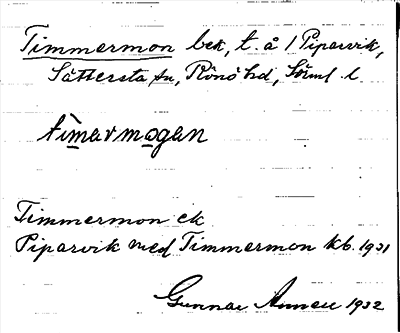 Timmermon bek, t. å 1 Piparvik,
Sättersta sn, Rönö hd, Söml. l.
timarmogan
Timmermon ek
Piparvik med Timmermon kb. 1931
Gunnar 1932